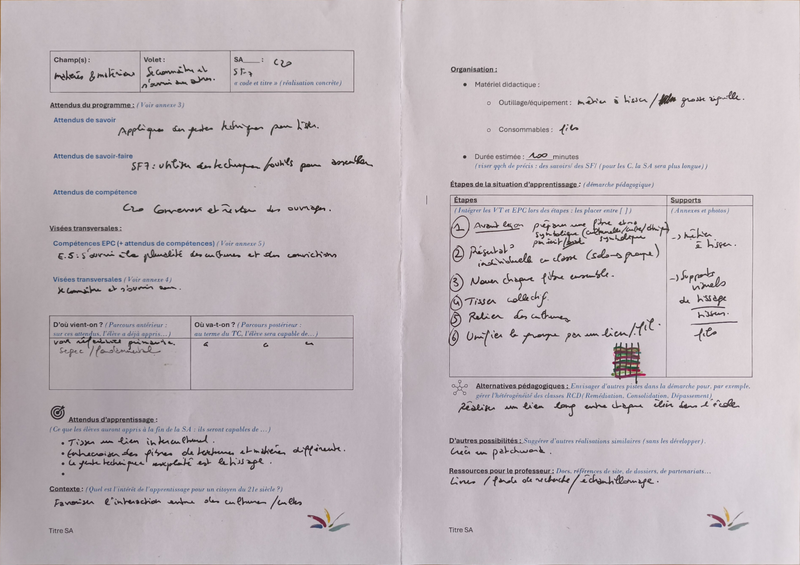 Champ(s) :
matières & matériaux
Volet :
Se connaître et
s'ouvrir aux autres.
SA____ : C20
SF7
« code et titre » (réalisation concrète)
Attendus du programme : (Voir annexe 3)
Attendus de savoir
Appliquer des gestes techniques pour lier.
Attendus de savoir-faire
SF7 : utiliser des techniques/outils pour assembler
Attendus de compétence
C20 Concevoir et réaliser des ouvrages.
Visées transversales :
Compétences EPC (+ attendus de compétences) ( Voir annexe 5)
E.5 : s'ouvrir à la pluralité des cultures et des convictions
Visées transversales (Voir annexe 4)
Se connaître et s'ouvrir aux
D'où vient-on ? ( Parcours antérieur :
sur ces attendus, l'élève a déjà appris…)
voir référentiel primaire.
/fondamental
Où va-t-on ? ( Parcours postérieur :
au terme du TC, l'élève sera capable de…)
Attendus d'apprentissage :
(Ce que les élèves auront appris à la fin de la SA : ils seront capables de …)
• Tisser un lien interculturel.
• Entrecroiser des fibres de textures et matières différente.
• Le geste technique exploité est le tissage.
•
Contexte : (Quel est l'intérêt de l'apprentissage pour un citoyen du 21e siècle ?)
Favoriser l'interaction entre des cultures /cultes
Titre SA
Organisation :
• Matériel didactique :
o Outillage/équipement : métier à tisser / grosse aiguille.
o Consommables : fils
• Durée estimée : 100 minutes
(viser qqch de précis : des savoirs/ des SF/ (pour les C, la SA sera plus longue) )
Étapes de la situation d'apprentissage : (démarche pédagogique)
Étapes
Supports
( Intégrer les VT et EPC lors des étapes : les placer entre [ ] )
(Annexes et photos)
① Avant leçon préparer une fibre et sa
symbolique (culturelle/culte/ethique)
symbolique
② Présentat°
individuelle en classe (selon groupe)
③ Nouer chaque fibre ensemble.
④ Tisser collectif
⑤ Relier des cultures
⑥ Unifier le groupe par un lien/fil.
→ métier
à tisser.
→ Supports
visuels
de tissage
tisser.
fils
Alternatives pédagogiques : Envisager d'autres pistes dans la démarche pour, par exemple,
gérer l'hétérogénéité des classes RCD( Remédiation, Consolidation, Dépassement)
Réaliser un lien long entre chaque élève dans l'école
D'autres possibilités : Suggérer d'autres réalisations similaires (sans les développer).
Créer un patchwork.
Ressources pour le professeur : Docs, références de site, de dossiers, de partenariats…
Livres / fonds de recherche / échantillonnage.
Titre SA